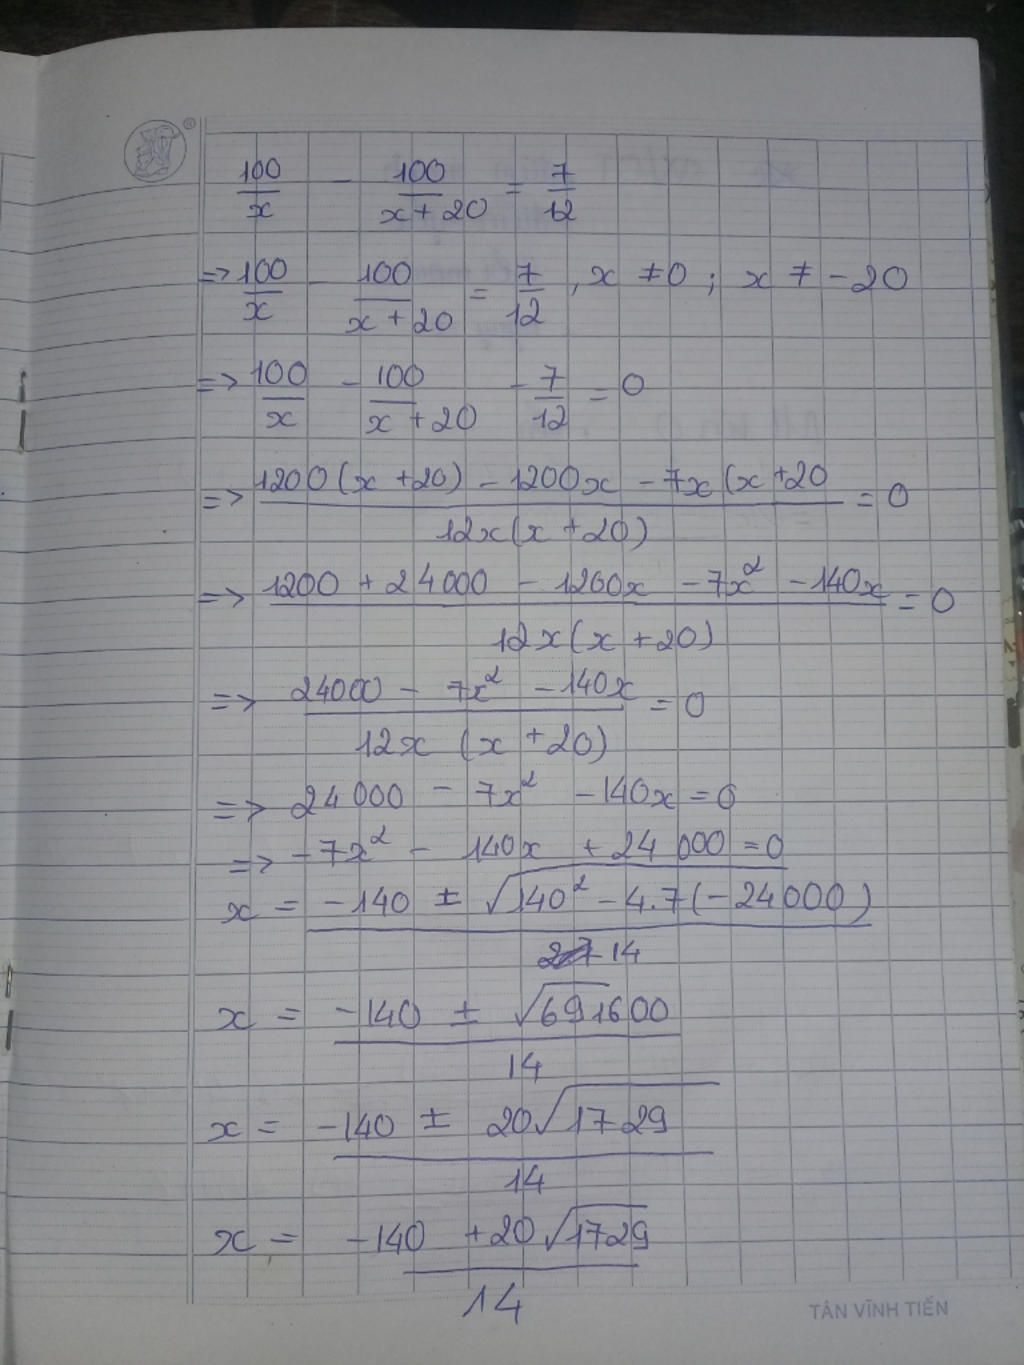 100/x - 100/(x + 20) = 7/12
=> 100/x - 100/(x + 20) = 7/12 , x ≠ 0 ; x ≠ -20
=> 100/x - 100/(x + 20) - 7/12 = 0
=> (1200(x + 20) - 1200x - 7x(x + 20)/(12x(x + 20)) = 0
=> (1200 + 24000 - 1200x - 7x² - 140x)/(12x(x + 20)) = 0
=> (24000 - 7x² - 140x)/(12x (x + 20)) = 0
=> 24000 - 7x² - 140x = 0
=> -7x² - 140x + 24000 = 0
x = (-140 ± √(140² - 4.7(-24000)))/14
x = (-140 ± √691600)/14
x = (-140 ± 20√1729)/14
x = (-140 + 20√1729)/14
TÂN VĨNH TIẾN